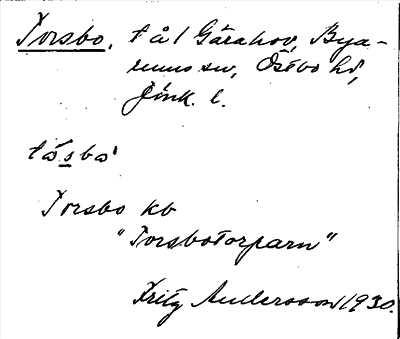 Torsbo, t å / Gårahov, Bya-
rums sn, Östbo hd,
Jönk. l.
tåsbo'
Torsbo kb
"Torsbotorparn"
Fritz Andersson 1930.